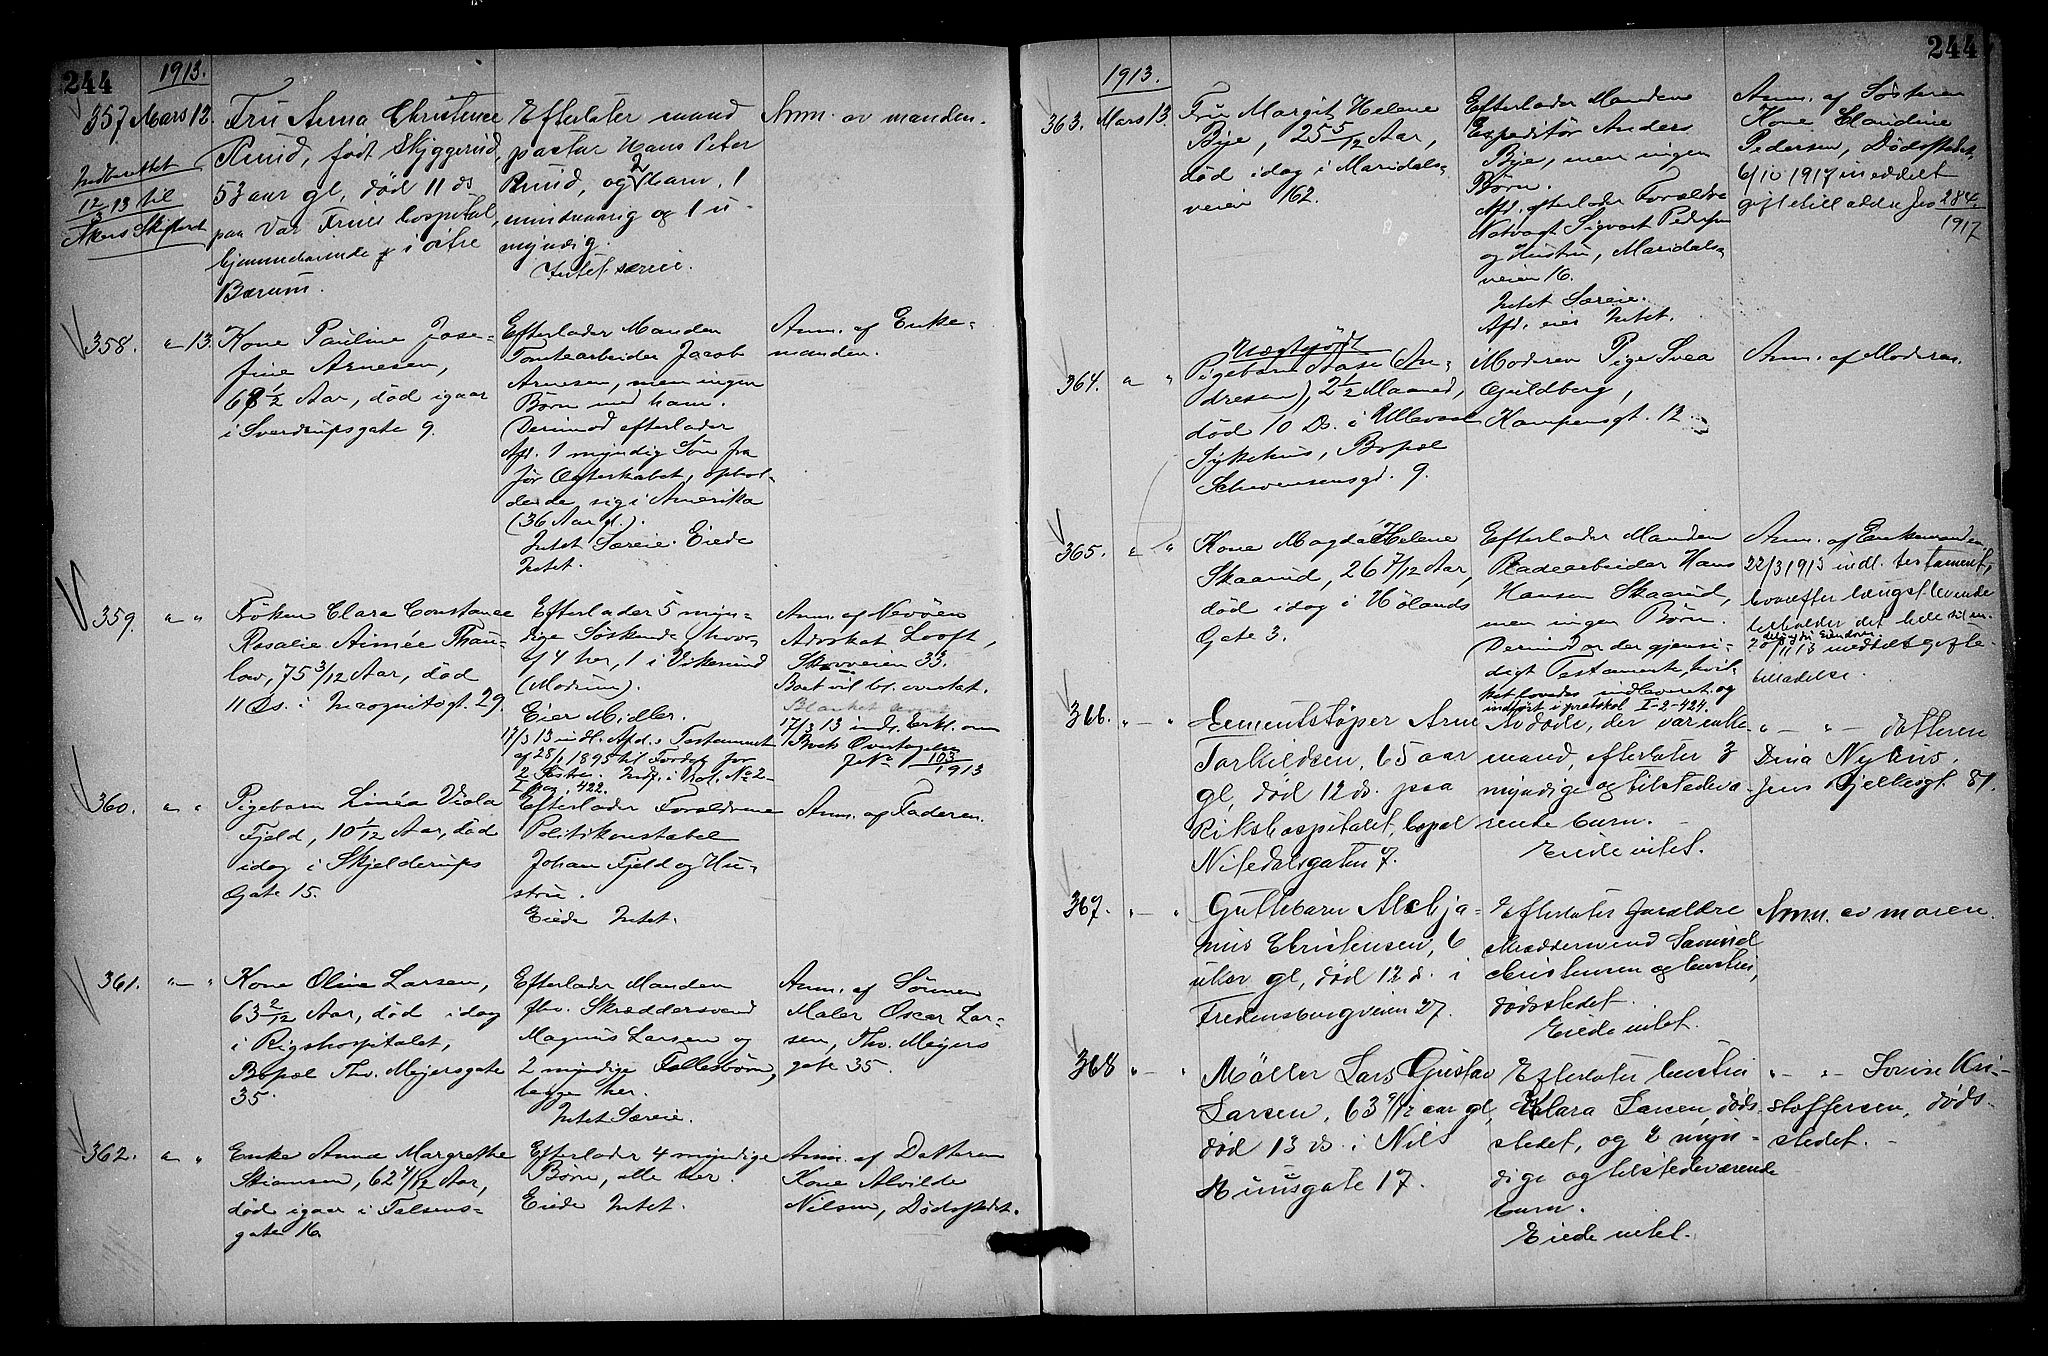 244
1913.
357. Mars 12.
Indberettet
12/3 13 til
Akers Skifteret
Fru Anna Christence
Ruud, født Skjggerud,
53 aar gl, død 11 ds
paa Vor Frues hospital,
hjemmehørende i østre
Bærum.
Efterlater mand
pastor Hans Peter
Ruud, og 2 barn, 1
mindreaarig og 1 u-
myndig.
Intet særeie.
Anm. av manden.
358. " 13.
Kone Pauline Jose-
fine Arnesen,
68 1/2 Aar, død igaar
i Sverdrupsgate 9.
Efterlader Manden
Tomtearbeider Jacob
Arnesen, men ingen
Børn med ham.
Derimod efterlader
Afd. 1 myndig Søn fra
før Ægteskabet, ophol-
dende sig i Amerika
(36 Aar gl.).
Intet Særeie. Eiede
Intet.
Anm. af Enke-
manden.
359. " "
Frøken Clara Constance
Rosalie Aimée Thau-
low, 75 3/12 Aar, død
11 Ds. i Incognitogt. 29.
Efterlader 5 myn-
dige Søskende, hvor-
af 4 her, 1 i Vikesund
(Modum).
Eier Midler.
17/3 13 indl. Afd.s Testament
af 28/1 1895 til Fordel for
2 Søstre. Indf. i Prot. No 2-
I pag. 422.
Anm. af Nevøen
Advokat Looft,
Skovveien 33.
Boet vil bl. overtat.
Blanket
17/3 13 indl. Erkl. om
Boets Overtagelse
J. No 103/1913
360. " "
Pigebarn Linéa Viola
Fjeld, 10 1/12 Aar, død
idag i Skjelderups
Gate 15.
Efterlader Forældrene
Politikonstabel
Johan Fjeld og Hu-
stru.
Eiede Intet.
Anm. af Faderen.
361. " "
Kone Olive Larsen,
63 2/12 Aar, død idag
i Rigshospitalet,
Bopæl Thv. Meyersgate
35.
Efterlader Manden
fhv. Skræddersvend
Magnus Larsen og
2 myndige Fællesbørn,
begge her.
Intet Særeie.
Anm. af Sønnen
Maler Oscar Lar-
sen, Thv. Meyers
gate 35.
362. " "
Enke Anna Margrethe
Skiansen, 62 4/12 Aar,
død igaar i Falsens-
gate 16.
Efterlader 4 myndige
Børn, alle her.
Eiede Intet.
Anm. af Datteren
Kone Alvilde
Nilsen, Dødsstedet.
244
1913.
363. Mars 13.
Fru Margit Helene
Bye, 25 5/12 Aar,
død idag i Maridals-
veien 162.
Efterlader Manden
Expeditør Anders
Bye, men ingen
Børn.
Afd. efterlader Forældre
Natvagt Sigvart Pedersen
og Hustru, Maridals-
veien 16.
Intet Særeie.
Afd. eier Intet.
Anm. af Søsteren
Kone Claudine
Pedersen, Dødsstedet.
6/10 1917 meddelt
skiftetilladelse Jno 284/1917
364. " "
Uægtefødt
Pigebarn Aase (An-
dresen), 2 1/2 Maaned,
død 10 Ds. i Ullevaal
Sykehus, Bopæl
Schwensensgd. 9.
Moderen Pige Svea
Guldberg,
Kampensgt. 12.
Anm. af Moderen.
365. " "
Kone Magda Helene
Skaarud, 26 7/12 Aar,
død idag i Hølands
Gate 3.
Efterlader Manden
Pladearbeider Hans
Hansen Skaarud,
men ingen Børn.
Derimod er der gjensi-
digt Testamente, hvil-
ket loves indleveret og
indført i protokol I-2-424.
Anm. af Enkemanden
22/3 1913 indl. testament,
hvorefter længstlevende
beholder det hele til en-
delig Eiendom.
20/11 13 meddelt skifte-
tilladelse.
366. " "
Cementstøper Arne
Torkildsen, 65 aar
gl, død 12 ds. paa
Rikshospitalet, bopæl
Nitedalsgaten 7.
Avdøde, der var enke-
mand, efterlater 3
myndige og tilstedevæ-
rende barn.
Eiede intet.
" " datteren
Dina Nyhus.
Jens Bjelkesgt. 81.
367. " "
Guttebarn Alebja-
nus Christensen, 6
uker gl, død 12 d. i
Fredensborgveien 27.
Efterlater forældre
skræddersvend Samuel
Christensen og hustru,
dødsstedet.
Eiede intet.
Anm. av moren.
368 " "
Møller Lars Gustav
Larsen, 63 9/12 aar gl,
død 13 ds. i Nils
Huusgate 17.
Efterlater hustru
Klara Larsen døds-
stedet, og 2 myn-
dige og tilstedeværende
barn.
Eiede intet.
" " Lovise Kri-
stoffersen, døds-
stedet.